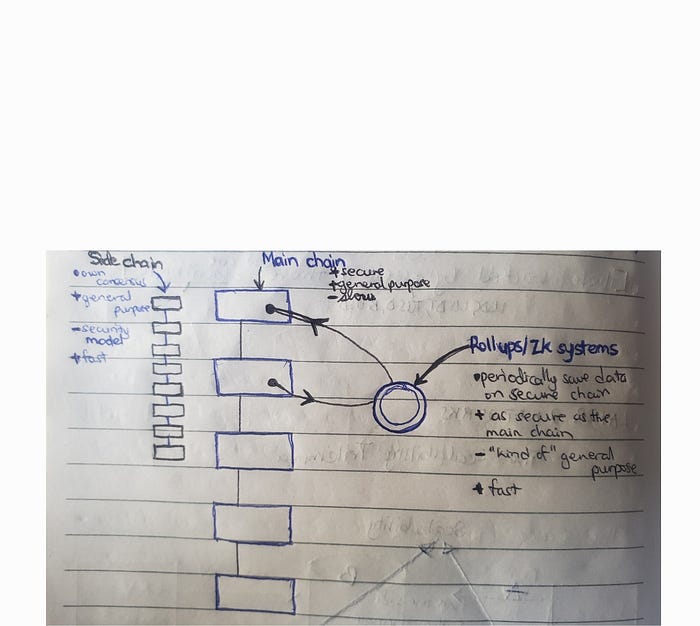 Side chain
•own
consensus
+general
purpose
-security
model
+fast
Main chain
+secure
+general purpose
-Slow
Rollups/Zk systems
•periodically save data
on secure chain
+ as secure as the
main chain
- "kind of" general
purpose
+ fast